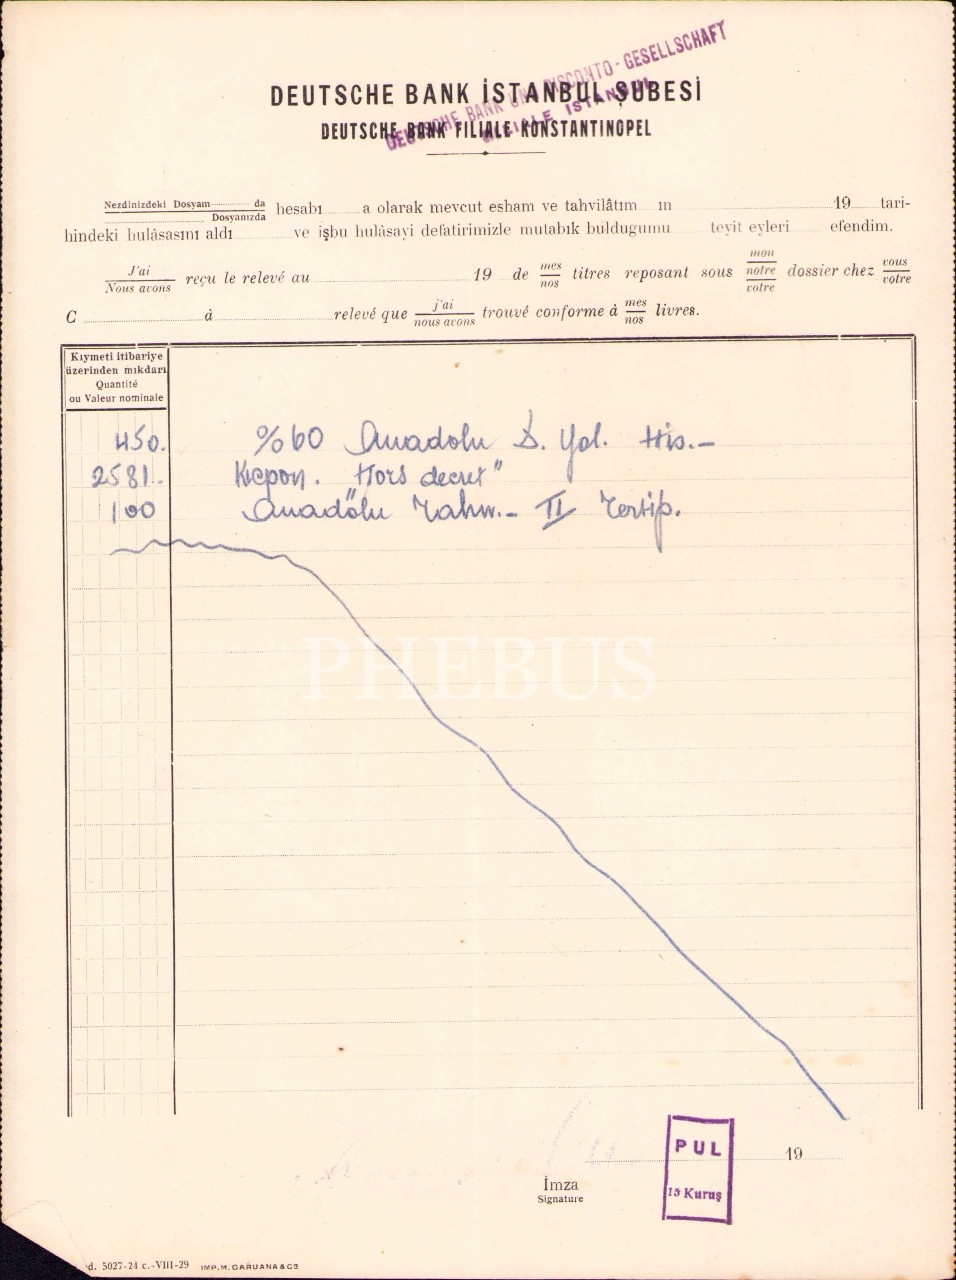 DEUTSCHE BANK UND DISCONTO-GESELLSCHAFT
FILIALE ISTANBUL
DEUTSCHE BANK İSTANBUL ŞUBESİ
DEUTSCHE BANK FILIALE KONSTANTINOPEL
Nezdinizdeki Dosyam da
Dosyanızda
hesabı a olarak mevcut esham ve tahvilâtım ın 19 tari-
hindeki hulâsasını aldı ve işbu hulâsayi defatirimizle mutabık buldugumu teyit eyleri efendim.
J'ai
Nous avons
reçu le relevé au 19 de mes
nos
titres reposant sous mon
notre
votre
dossier chez vous
votre
C à relevé que j'ai
nous avons
trouvé conforme à mes
nos
livres.
Kıymeti itibariye
üzerinden mıkdarı
Quantité
ou Valeur nominale
450. %60 Anadolu D. Yol. His.-
2581.- Kupon. "Hors decret"
100 Anadolu Tahv.- II Tertip.
PHEBUS
PUL
15 Kuruş
19
İmza
Signature
d. 5027-24 c.-VIII-29 IMP. M. CARUANA & Co